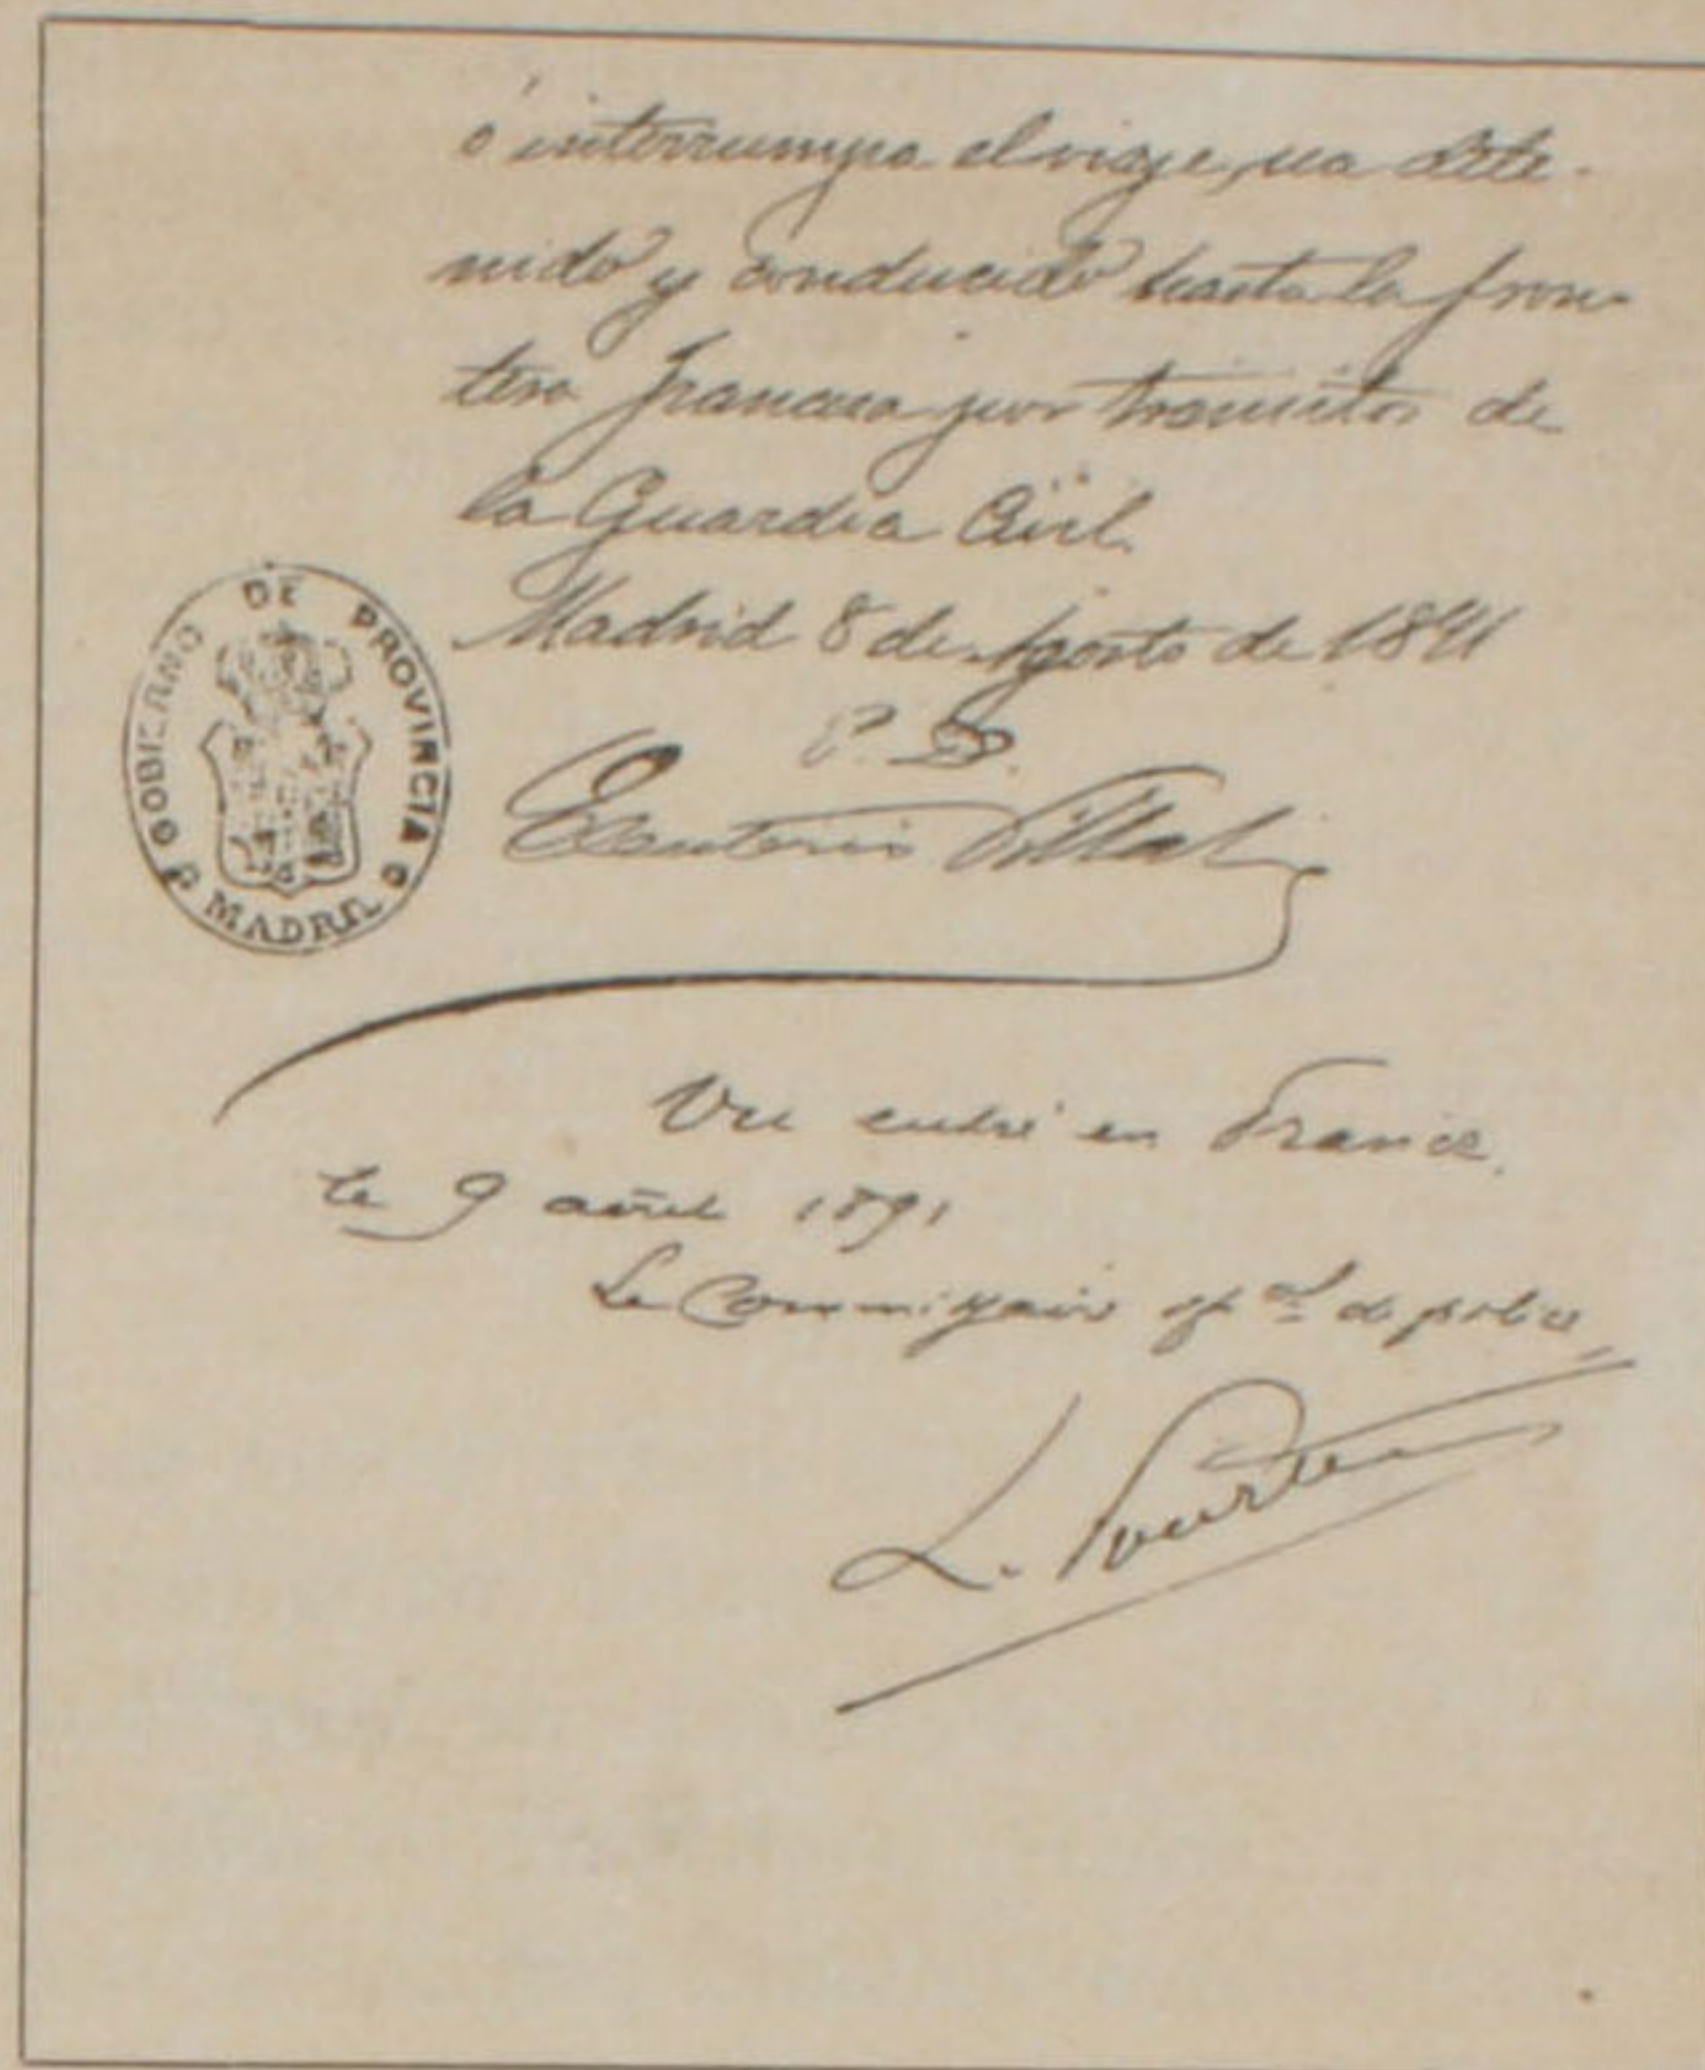 ó interrumpa el viaje, sea dete-
nido y conducido hasta la fron-
tera francesa por tránsitos de
la Guardia Civil.
Madrid 8 de Agosto de 1891
P. D.
Eleuterio Villal
GOBIERNO DE PROVINCIA
MADRID
Vu entré en France,
le 9 août 1891
Le Commissaire spal de police,
L.